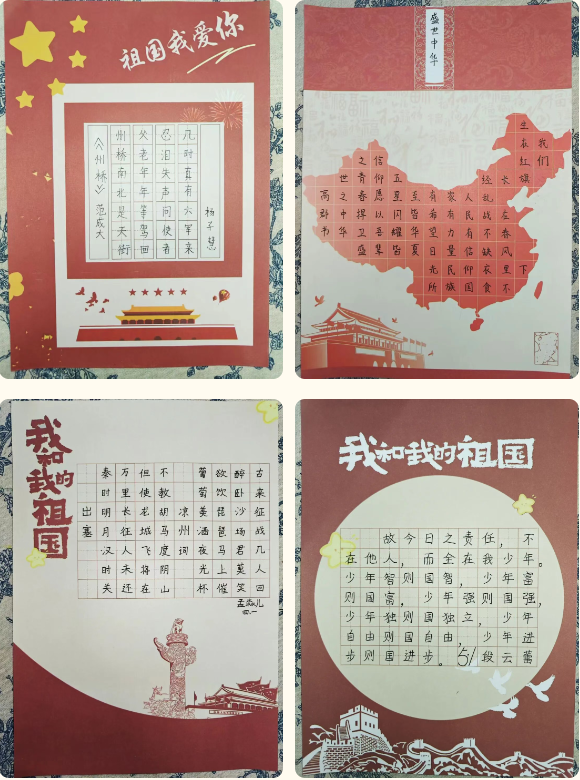 祖国我爱你
《州桥》 范成大
州桥南北是天街
父老年年等驾回
忍泪失声问使者
几时真有六军来
杨子慧
盛世中华
我们
生在红旗下
长在春风里不
经乱战不缺衣食
人民有信仰国
家有力量民族
有希望目光所
至皆华夏
五星闪耀皆
信仰愿以吾辈
之青春捍卫盛
世之中华
我和我的祖国
出塞
秦时明月汉时关
万里长征人未还
但使龙城飞将在
不教胡马度阴山
凉州词
葡萄美酒夜光杯
欲饮琵琶马上催
醉卧沙场君莫笑
古来征战几人回
四.一
我和我的祖国
故今日之责任，不
在他人，而全在我少年。
少年智则国智，少年富
则国富，少年强则国强，
少年独则国独立，少年
自由则国自由，少年进
步则国进步。51段云蕾